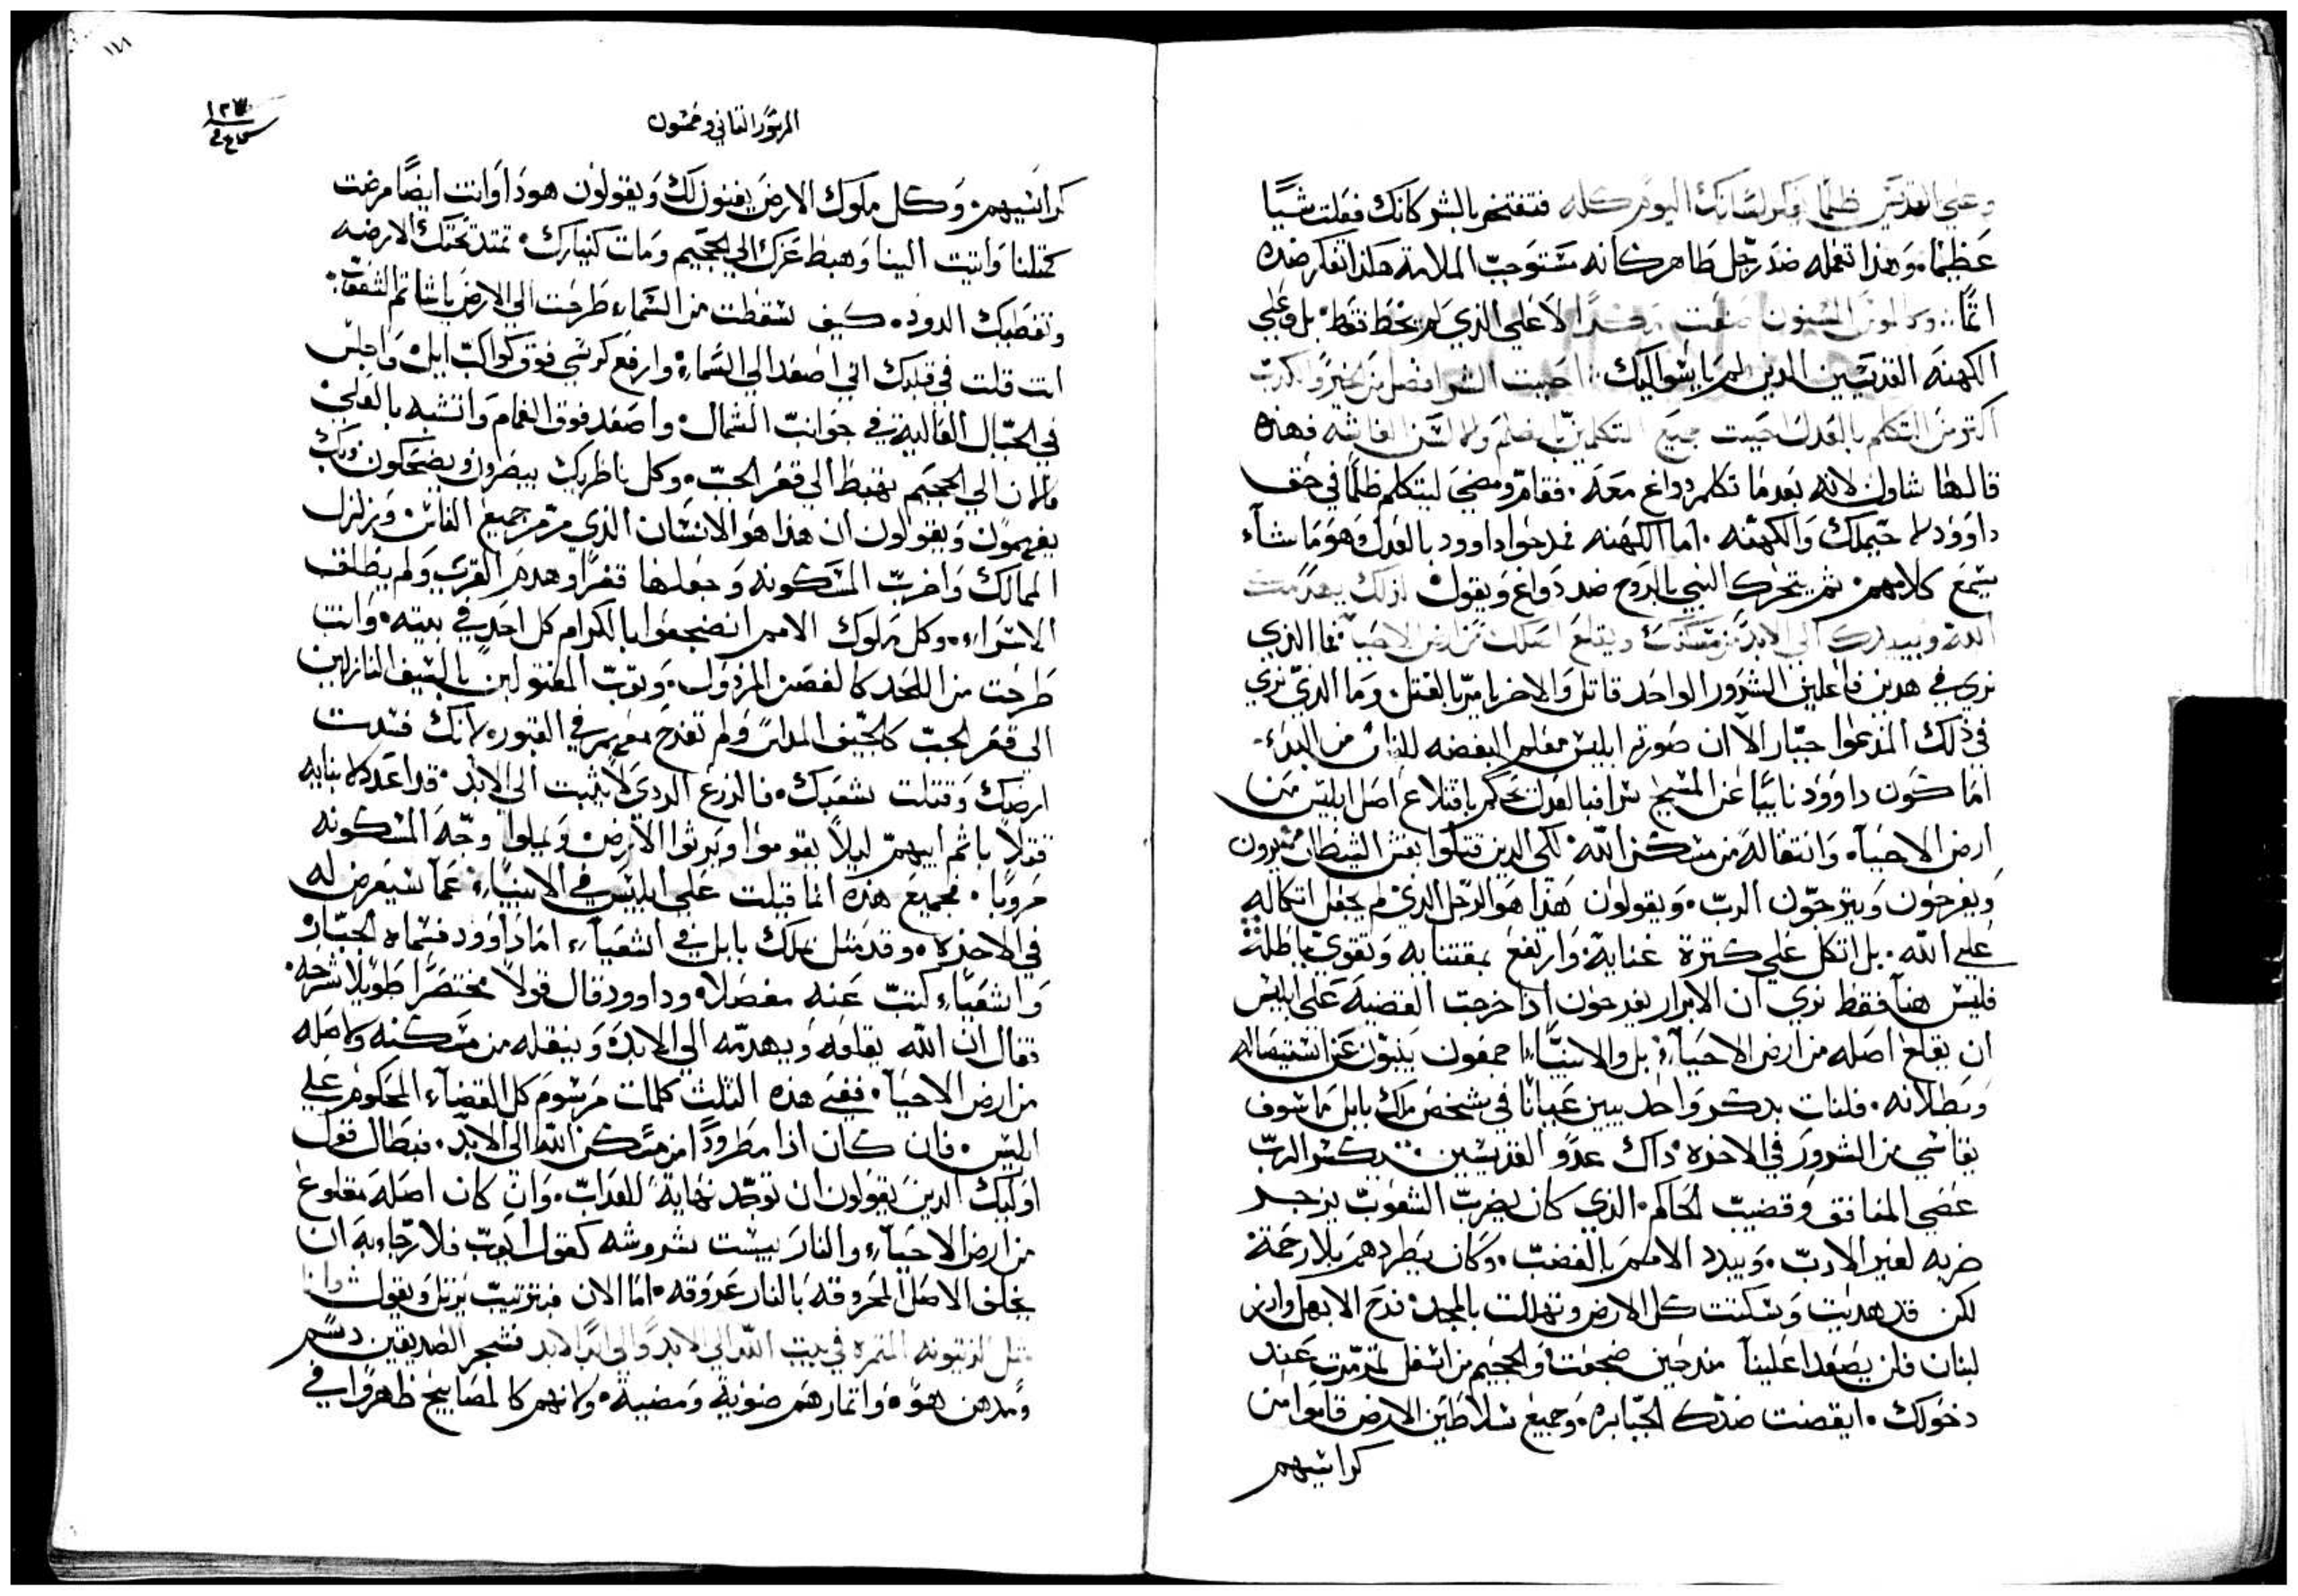 وعلي القديس ظلما فكر لسانك اليوم كله فتفتخر بالشر كانك فعلت شيًا
عظيمًا. وهذا تعمله ضد رجل طاهر كانه مستوجب الملامة هكذا تفكر ضده
اثمًا. المسنون صنعت الاعلي الذي لم يخط قط. بل وعلي
الكهنة القديسين الدين لم ياسوا اليك. احببت الشر افضل من الخير والكدب
اكتر من التكلم بالعدل احببت جميع التكلم واللسان الغاشة فهذه
قالها شاول لانه بعدما تكلم دواغ معه. فقام ومضي ليتكلم ظلمًا في حق
داوود لاحيملك والكهنه. اما الكهنه فمدحوا داوود بالعدل وهو ما شاء
يسمع كلامهم. ثم يتحرك النبي بالروح ضد دواغ ويقول لذلك يهدمك
الله ويبيدك الي الابد من مسكنك ويقلع اصلك من ارض الاحيا. فما الذي
نري في هدين فاعلين الشرور الواحد قاتل والاخر يامر بالقتل. وما الدي نري
في ذلك المدعوا جبّار الا ان صورتهم ابليس معلم البغضه للناس من البدء.
اما كون داوود نايبًا عن المسيح فبالعدل حكم باقتلاع اصل ابليس من
ارض الاحياء. وانتقاله من مسكن الله. لكي الدين قتلوا بغش الشيطان يسرون
ويفرحون ويترجون الرب. ويقولون هذا هو الرجل الدي لم يجعل اتكاله
علي الله. بل اتكل علي كترة غنايه. وارتفع بمقتنايه وتقوي باطله
فليس هنا فقط نري ان الابرار يفرحون اذا خرجت القضية علي ابليس
ان يقلع اصله من ارض الاحياء. بل والانبياء اجمعون ينبون عن استيصاله
وبطلانه. فلنات بدكر واحد يبين عيانًا في شخص ملك بابل ما سوف
يقاسي من الشرور في الاخره داك عدو القديسين. يكسر الرب
عصي المنافق وقضيب الحاكم. الذي كان يضرب الشعوب بزجر
ضربه لغير الادب. ويبدد الامم بالغضب. وكان يطردهم بلا رحمة
لكن قد هديت وسكنت كل الارض وتهللت بالمجد. فرح الابهل وارز
لبنان فلن يصعد علينا مند حين ضجعت والجحيم من اسفل تمرمرت عند
دخولك. ايقضت ضدك الجبابره. وجميع سلاطين الارض قاموا من
كراسيهم
١٢٣
المزمور التاني وخمسون
كراسيهم. وكل ملوك الارض يغنون لك ويقولون هودا وانت ايضًا مرضت
كمتلنا واتيت الينا وهبط عزك الي الجحيم ومات كنيارك. تمتد تحتك الارضه
وتغطيك الدود. كيف سقطت من السماء طرحت الي الارض
انت قلت في قلبك اني اصعد الي السماء. وارفع كرسي فوق كواكب ايل. واجلس
في الجبال العالية في جوانب الشمال. واصعد فوق الغمام واتشبه بالعلي
فالان الي الجحيم تهبط الي قعر الجب. وكل ناظريك يبصرون ويضحكون
يفهمون ويقولون ان هذا هو الانسان الذي مرمر جميع الناس وزلزل
الممالك واخرب المسكونه وجعلها قفرًا وهدم القري ولم يطلق
الاسراء. وكل ملوك الامم انضجعوا بالكرام كل احد في بيته. وانت
طرحت من اللحد كالغصن المردول. وتوب المقتولين بالسيف النازلين
الي قعر الجب كالجيف ولم تفرح معهم في القبور. لانك فسدت
ارضك وقتلت شعبك. فالزرع الردي لا يثبت الي الابد. قد اعد لابنايه
قتلًا باثم ابيهم ليلًا يقوموا ويرثوا الارض. ويملوا وجه المسكونه
حروبًا. فجميع هذه انما قيلت علي ابليس في الانبياء. عما سيعرض له
في الاخره. وقد مثل بملك بابل في اشعياء. اما داوود فسماه الجبّار
واشعياء كتب عنه مفصلا. وداوود قال قولًا مختصرًا طويلًا شرحه.
فقال ان الله يقلعه ويهدمه الي الابد. وينقله من مسكنه واصله
من ارض الاحياء. ففي هذه التلث كلمات مرسوم كل القضاء المحكوم علي
ابليس. فان كان اذا مطرودًا من مسكن الله الي الابد. فبطال قول
اوليك الدين يقولون ان توجد نهاية للعداب. وان كان اصله مقلوع
من ارض الاحياء. والنار يبست شروشه كقول ايوب فلا رجا به ان
يخلف الاصل المحروقه بالنار عروقه. اما الان فبترتيب يرتل ويقول وانا
متل الزيتونه المتمره في بيت الله الي الابد والي ابد الابد فشجر الصديقين دسم
ومدهن هو. واتمارهم ضنويه ومضية. ولانهم كالمصابيح ظهروا في